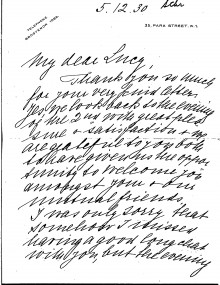 5.12.30
TELEPHONE
35, PARK STREET, W.1.
My dear Lucy,
Thank you so much
for your very kind letter.
Yes, we look back to the evening
of the 2nd with great plea-
sure & satisfaction & we
are grateful to you both
to have given us the oppor-
tunity to welcome you
amongst your & our
mutual friends.
I was only sorry that
somehow I missed
having a good long chat
with you, but the evening